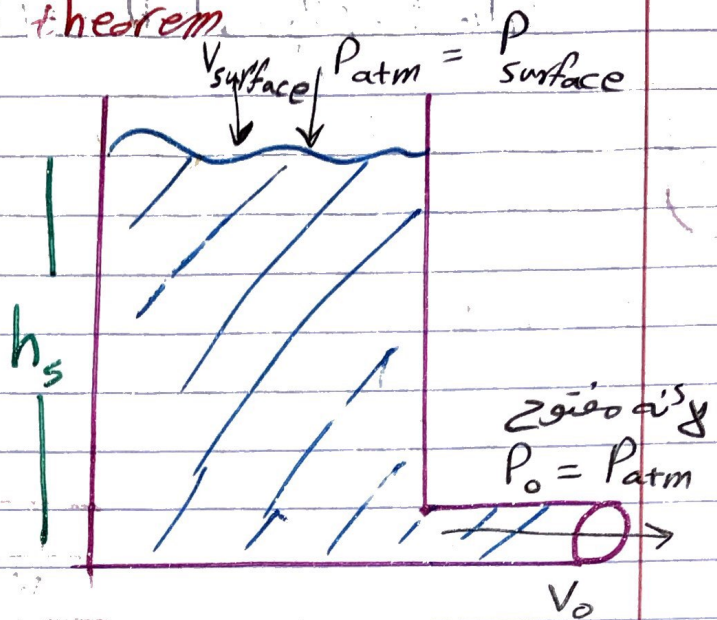 theorem
V surface P atm = P surface
h s
لأنه مفتوح
P o = P atm
V o